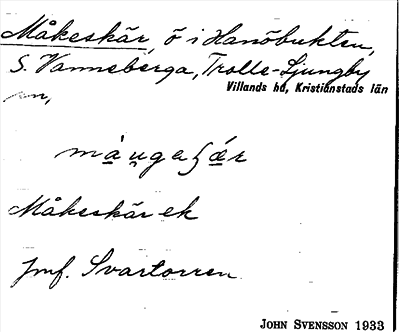 Måkeskär, ö i Hanöbukten,
S. Vanneberga, Trolle-Ljungby
Villands hd, Kristianstads län
sn,
Måkeskär ek
Jmf. Svartorren
JOHN SVENSSON 1933